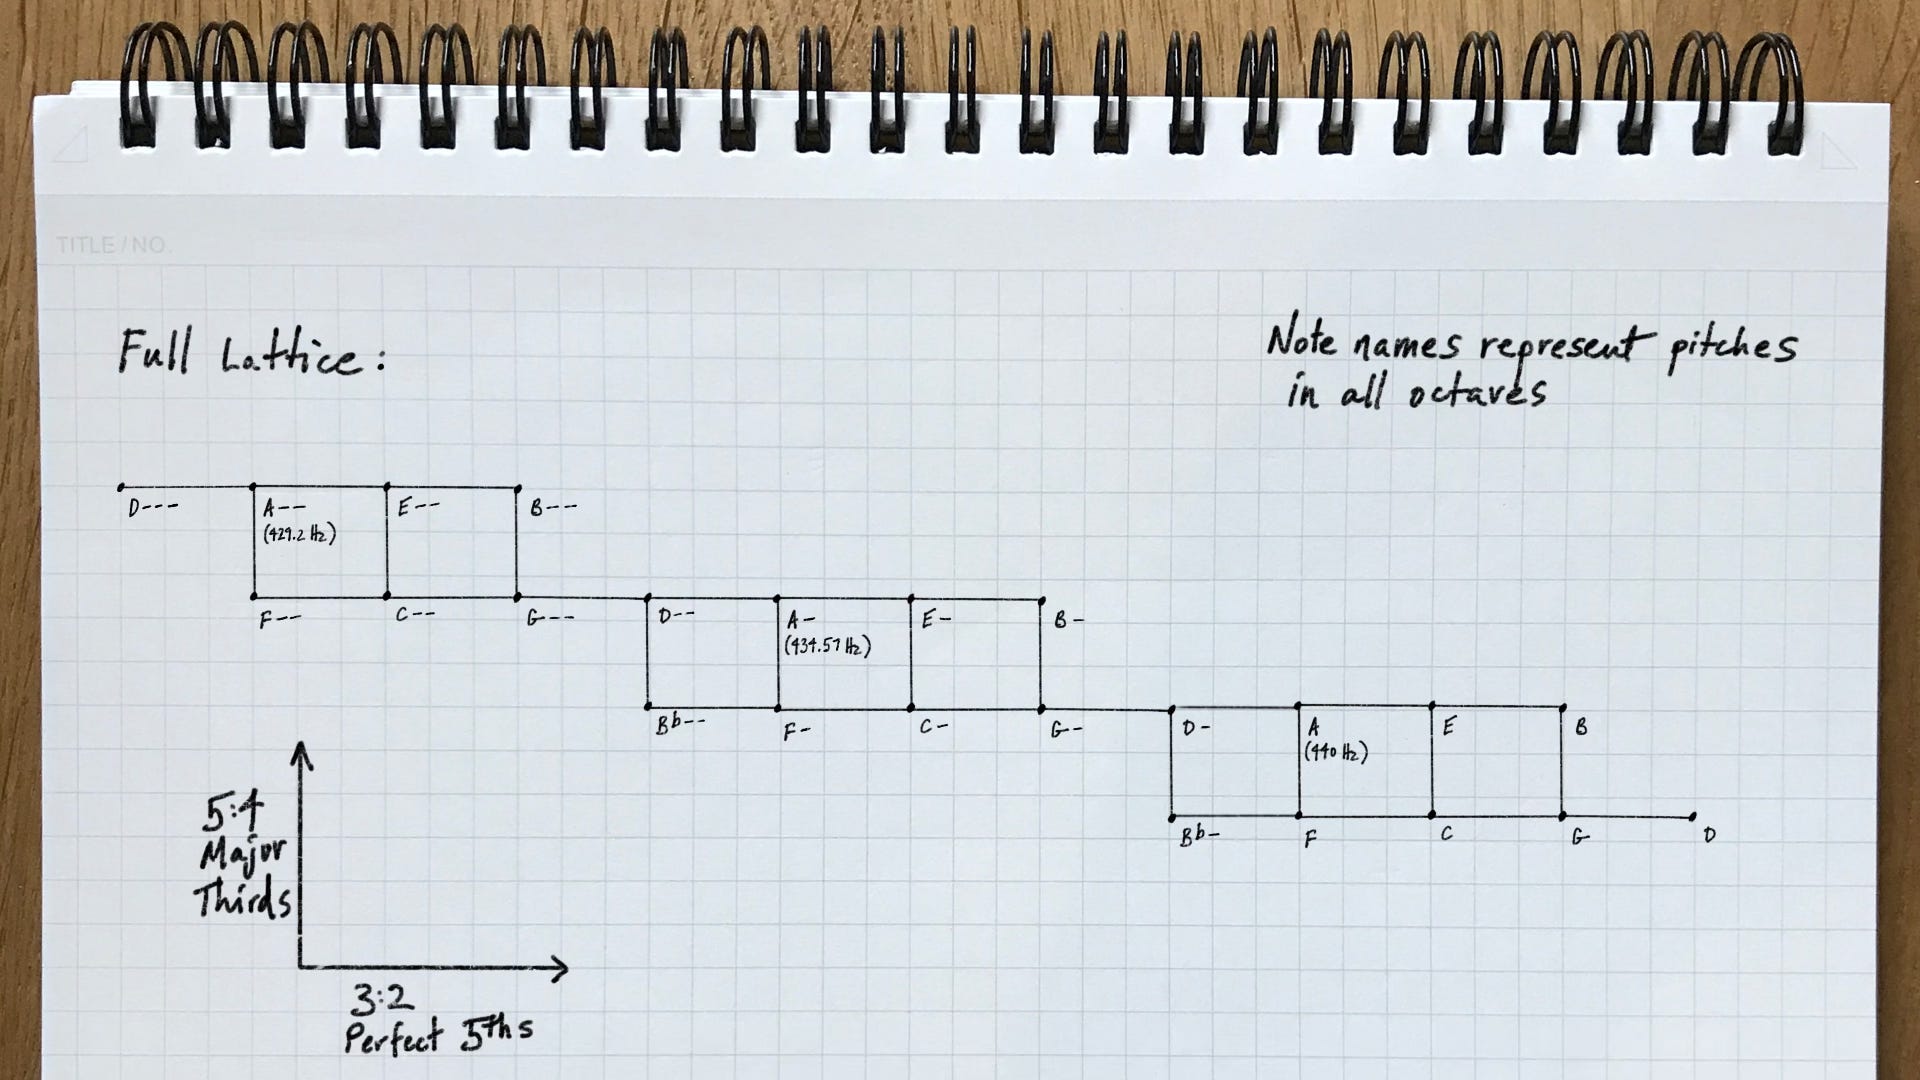 TITLE / NO.
Full Lattice:
Note names represent pitches
in all octaves
D--- A-- E-- B---
(429.2 Hz)
F-- C-- G--- D-- A- E- B-
(434.57 Hz)
Bb-- F- C- G- D- A E B
(440 Hz)
Bb- F C G D
5:4
Major
Thirds
3:2
Perfect 5ths